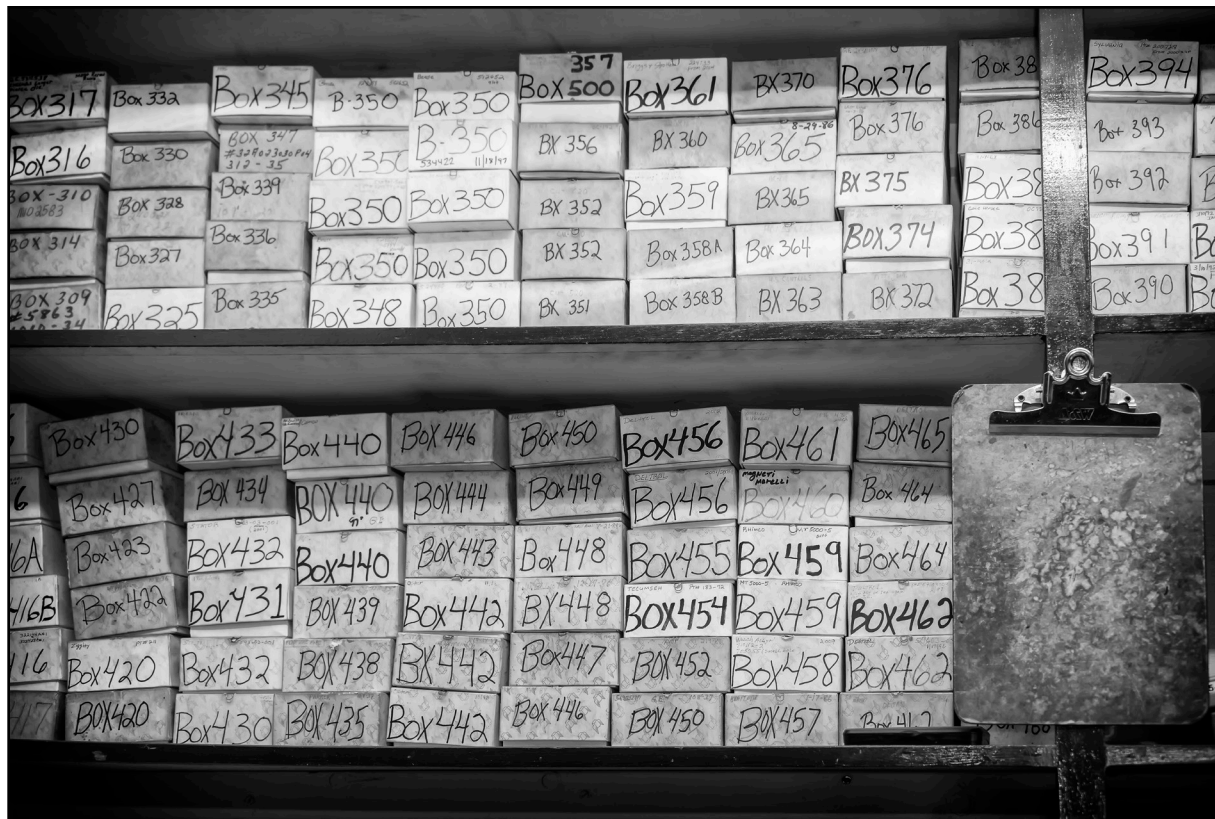 Box 317
Box 316
BOX-310
BOX 314
BOX 309
#5863
Box 332
Box 330
Box 328
Box 327
Box 325
Box 345
BOX 347
312-35
Box 339
Box 336
Box 335
B-350
Box 350
Box 350
Box 350
Box 348
Box 350
B-350
534422 11/18/97
Box 350
Box 350
Box 350
357
Box 500
BX 356
BX 352
BX 352
BX 351
Box 361
BX 360
Box 359
Box 358A
Box 358B
BX 370
8-29-86
Box 365
BX 365
Box 364
BX 363
Box 376
Box 376
BX 375
BOX 374
BX 372
Box 38
Box 386
Box 38
Box 38
Box 38
Box 394
Box 393
Box 392
Box 391
Box 390
6
6A
416B
116
417
Box 430
Box 427
Box 423
Box 422
Box 420
BOX 420
Box 433
BOX 434
Box 432
Box 431
Box 432
Box 430
Box 440
BOX 440
Box 440
BOX 439
BOX 438
BOX 435
BOX 446
BOX 444
BOX 443
Box 442
BX 442
Box 442
Box 450
Box 449
Box 448
BX 448
Box 447
BOX 446
Box 456
Box 456
Box 455
TECUMSEH
BOX 454
BOX 452
BOX 450
Box 461
magneti
marelli
Box 460
Box 459
Box 459
Box 458
BOX 457
Box 465
Box 464
Box 464
BOX 462
Box 462